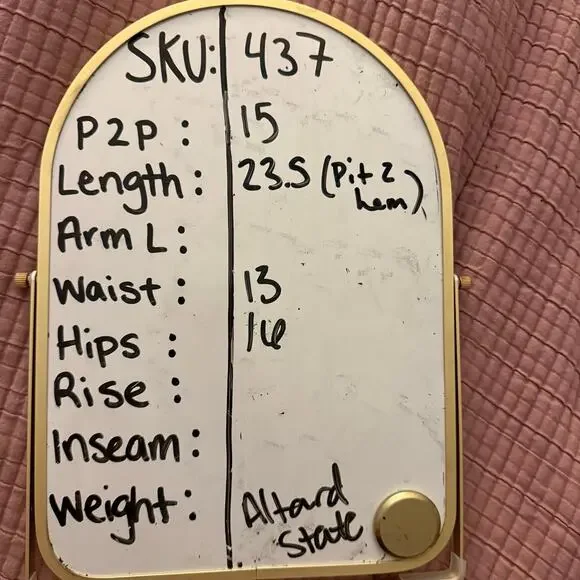 SKU: 437
P2P: 15
Length: 23.5 (Pit 2
hem)
Arm L:
Waist: 13
Hips: 16
Rise:
Inseam:
Weight: Altard
State